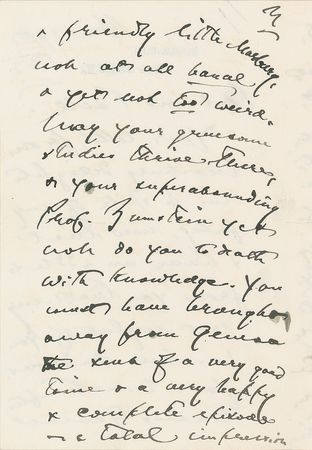 a friendly little Marburg,
not at all banal
& yet not too weird.
May your gruesome
studies thrive there,
& your superabounding
Prof. Bumstein yet
not do you to death
with knowledge. You
must have brought
away from Genoa
the sense of a very good
time & a very happy
& complete episode
— a total impression